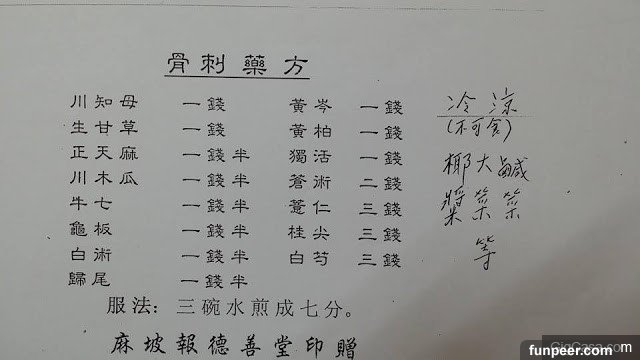 骨刺藥方
川知母 一錢 黃岑 一錢
生甘草 一錢 黃柏 一錢
正天麻 一錢半 獨活 一錢
川木瓜 一錢半 蒼術 二錢
牛七 一錢半 薏仁 三錢
龜板 一錢半 桂尖 三錢
白術 一錢半 白芍 三錢
歸尾 一錢半
服法：三碗水煎成七分。
麻坡報德善堂印贈
冷涼
(不可食)
椰大鹹
漿菜菜
等
funpeer.com